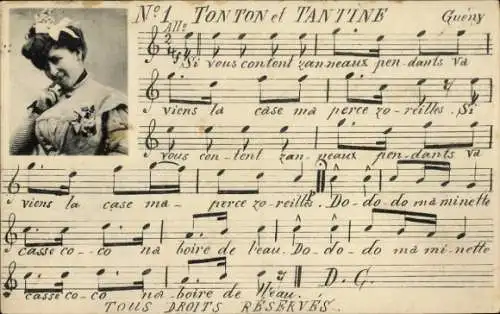 No. 1 TONTON et TANTINE Guény
Allo
Si vous content zanneaux pendants va
viens la case ma perce zo-reilles. Si
vous con-tent zan-neaux pen-dants va
viens la case ma- perce zo-reilles. Do-do-do ma minette
casse co--co na boire de l'eau. Do-do-do ma mi-nette
casse co-co na boire de l'eau. D. C.
TOUS DROITS RÉSERVÉS